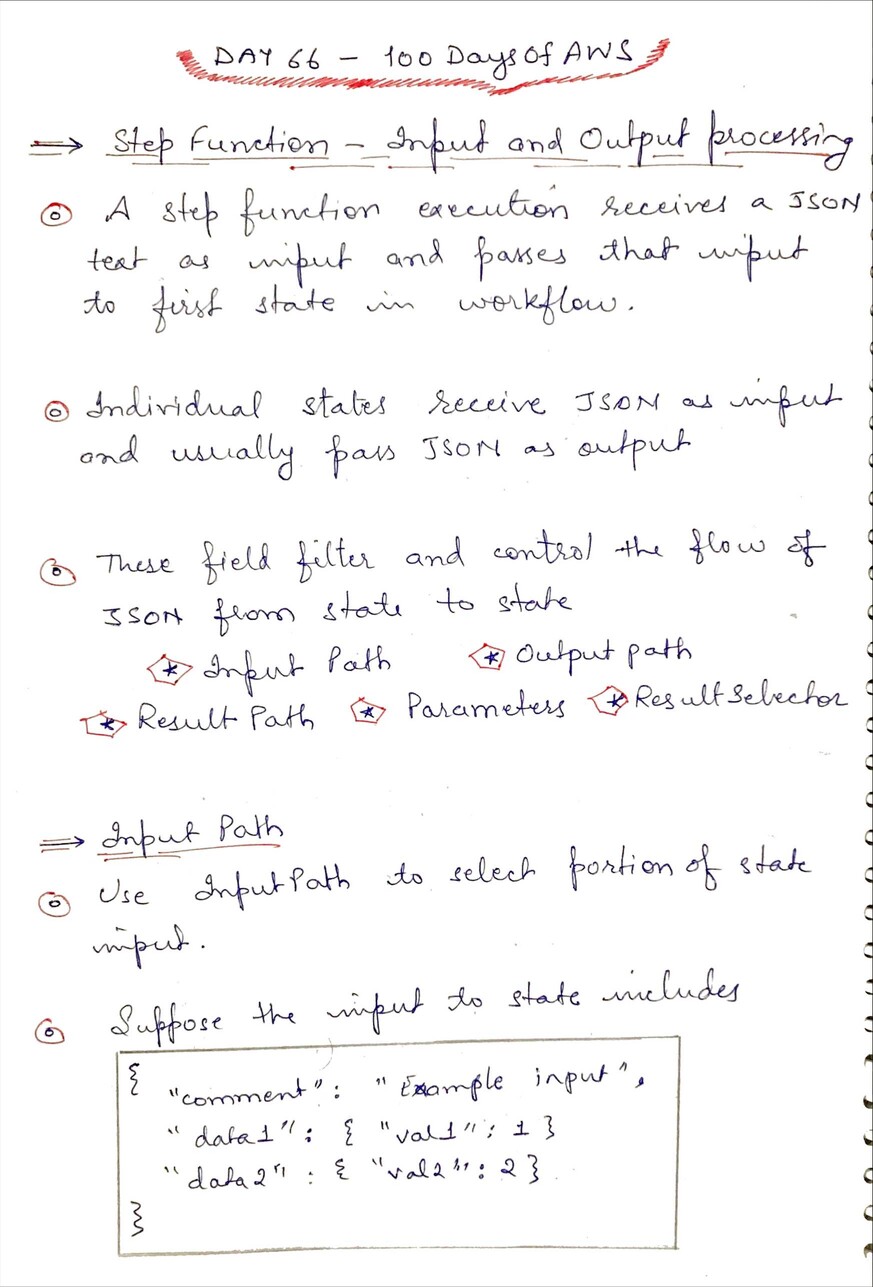 DAY 66 – 100 Days Of AWS
⇒ Step Function – Input and Output processing
A step function execution receives a JSON
text as input and passes that input
to first state in workflow.
Individual states receive JSON as input
and usually pass JSON as output
These field filter and control the flow of
JSON from state to state
Input Path Output path
Result Path Parameters ResultSelector
⇒ Input Path
Use InputPath to select portion of state
input.
Suppose the input to state includes
{
"comment": "Example input",
"data1": { "val1": 1 }
"data2": { "val2": 2 }
}